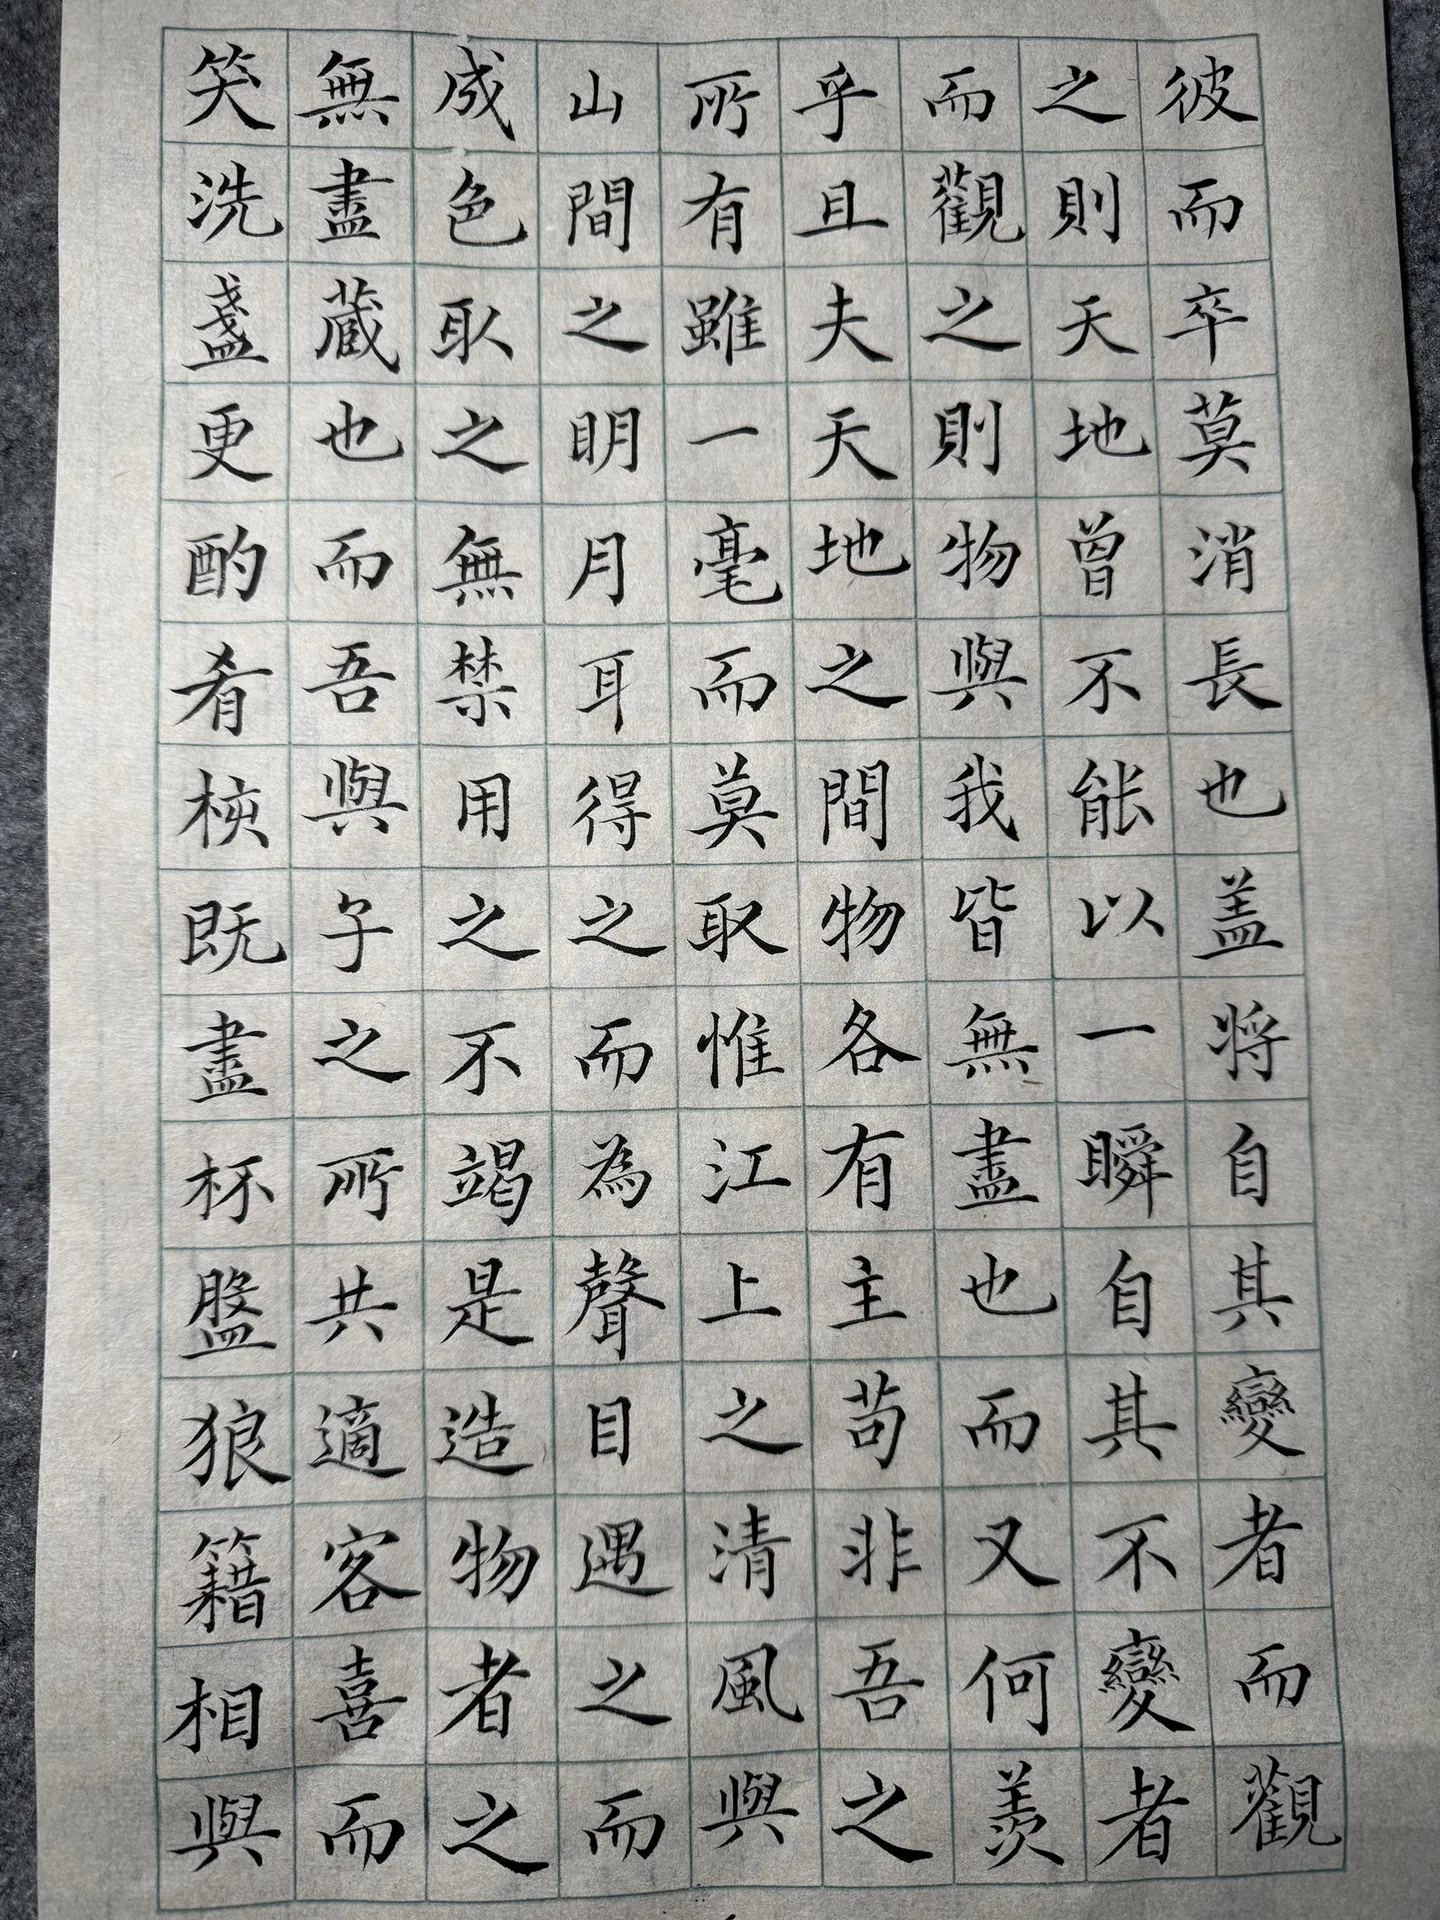 彼而卒莫消長也盖将自其變者而觀
之則天地曾不能以一瞬自其不變者
而觀之則物與我皆無盡也而又何羡
乎且夫天地之間物各有主苟非吾之
所有雖一毫而莫取惟江上之清風與
山間之明月耳得之而為聲目遇之而
成色取之無禁用之不竭是造物者之
無盡蔵也而吾與子之所共適客喜而
笑洗盞更酌肴核既盡杯盤狼籍相與